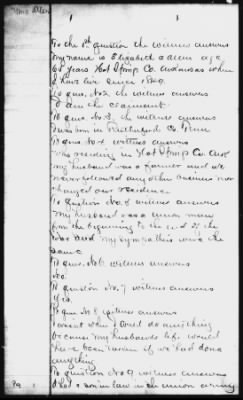 To the 1st question the witness answers
my name is Elizabeth Allen age
65 years Hot Springs Co. Arkansas where
I have live since 1849.
To ques. No 2 the witness answers
I am the claimant.
To ques No 3 the witness answers
I was born in Rutherford Co. Tenn
To ques No 4 witness answers
was residing in Hot Springs Co. Ark
my husband was a farmer and we
never followed any other business nor
changed our residence
To question No 5 witness answers
my husband was a union man
from the beginning to the end of the
war and my sympathies were the
same
To ques. No 6 witness answers
No.
To question No. 7 witness answers
No.
To ques No 8 witness answers
I wasent where I could do anything
because my husbands life would
have been taken if we had done
anything
To question No 9 witness answers
I had a son in law in the union army